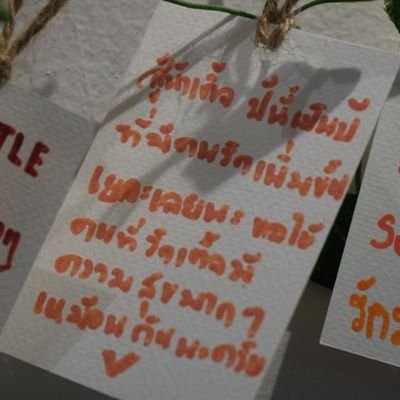 กู๊กเต๋อ ปีนี้เป็นปี
ที่มีคนรักเพิ่มขึ้น
เยอะเลยนะ ขอให้
คนที่รักเต๋อมี
ความสุขมาก ๆ
เหมือนกันนะครับ
TLE
ๆ
S
รัก